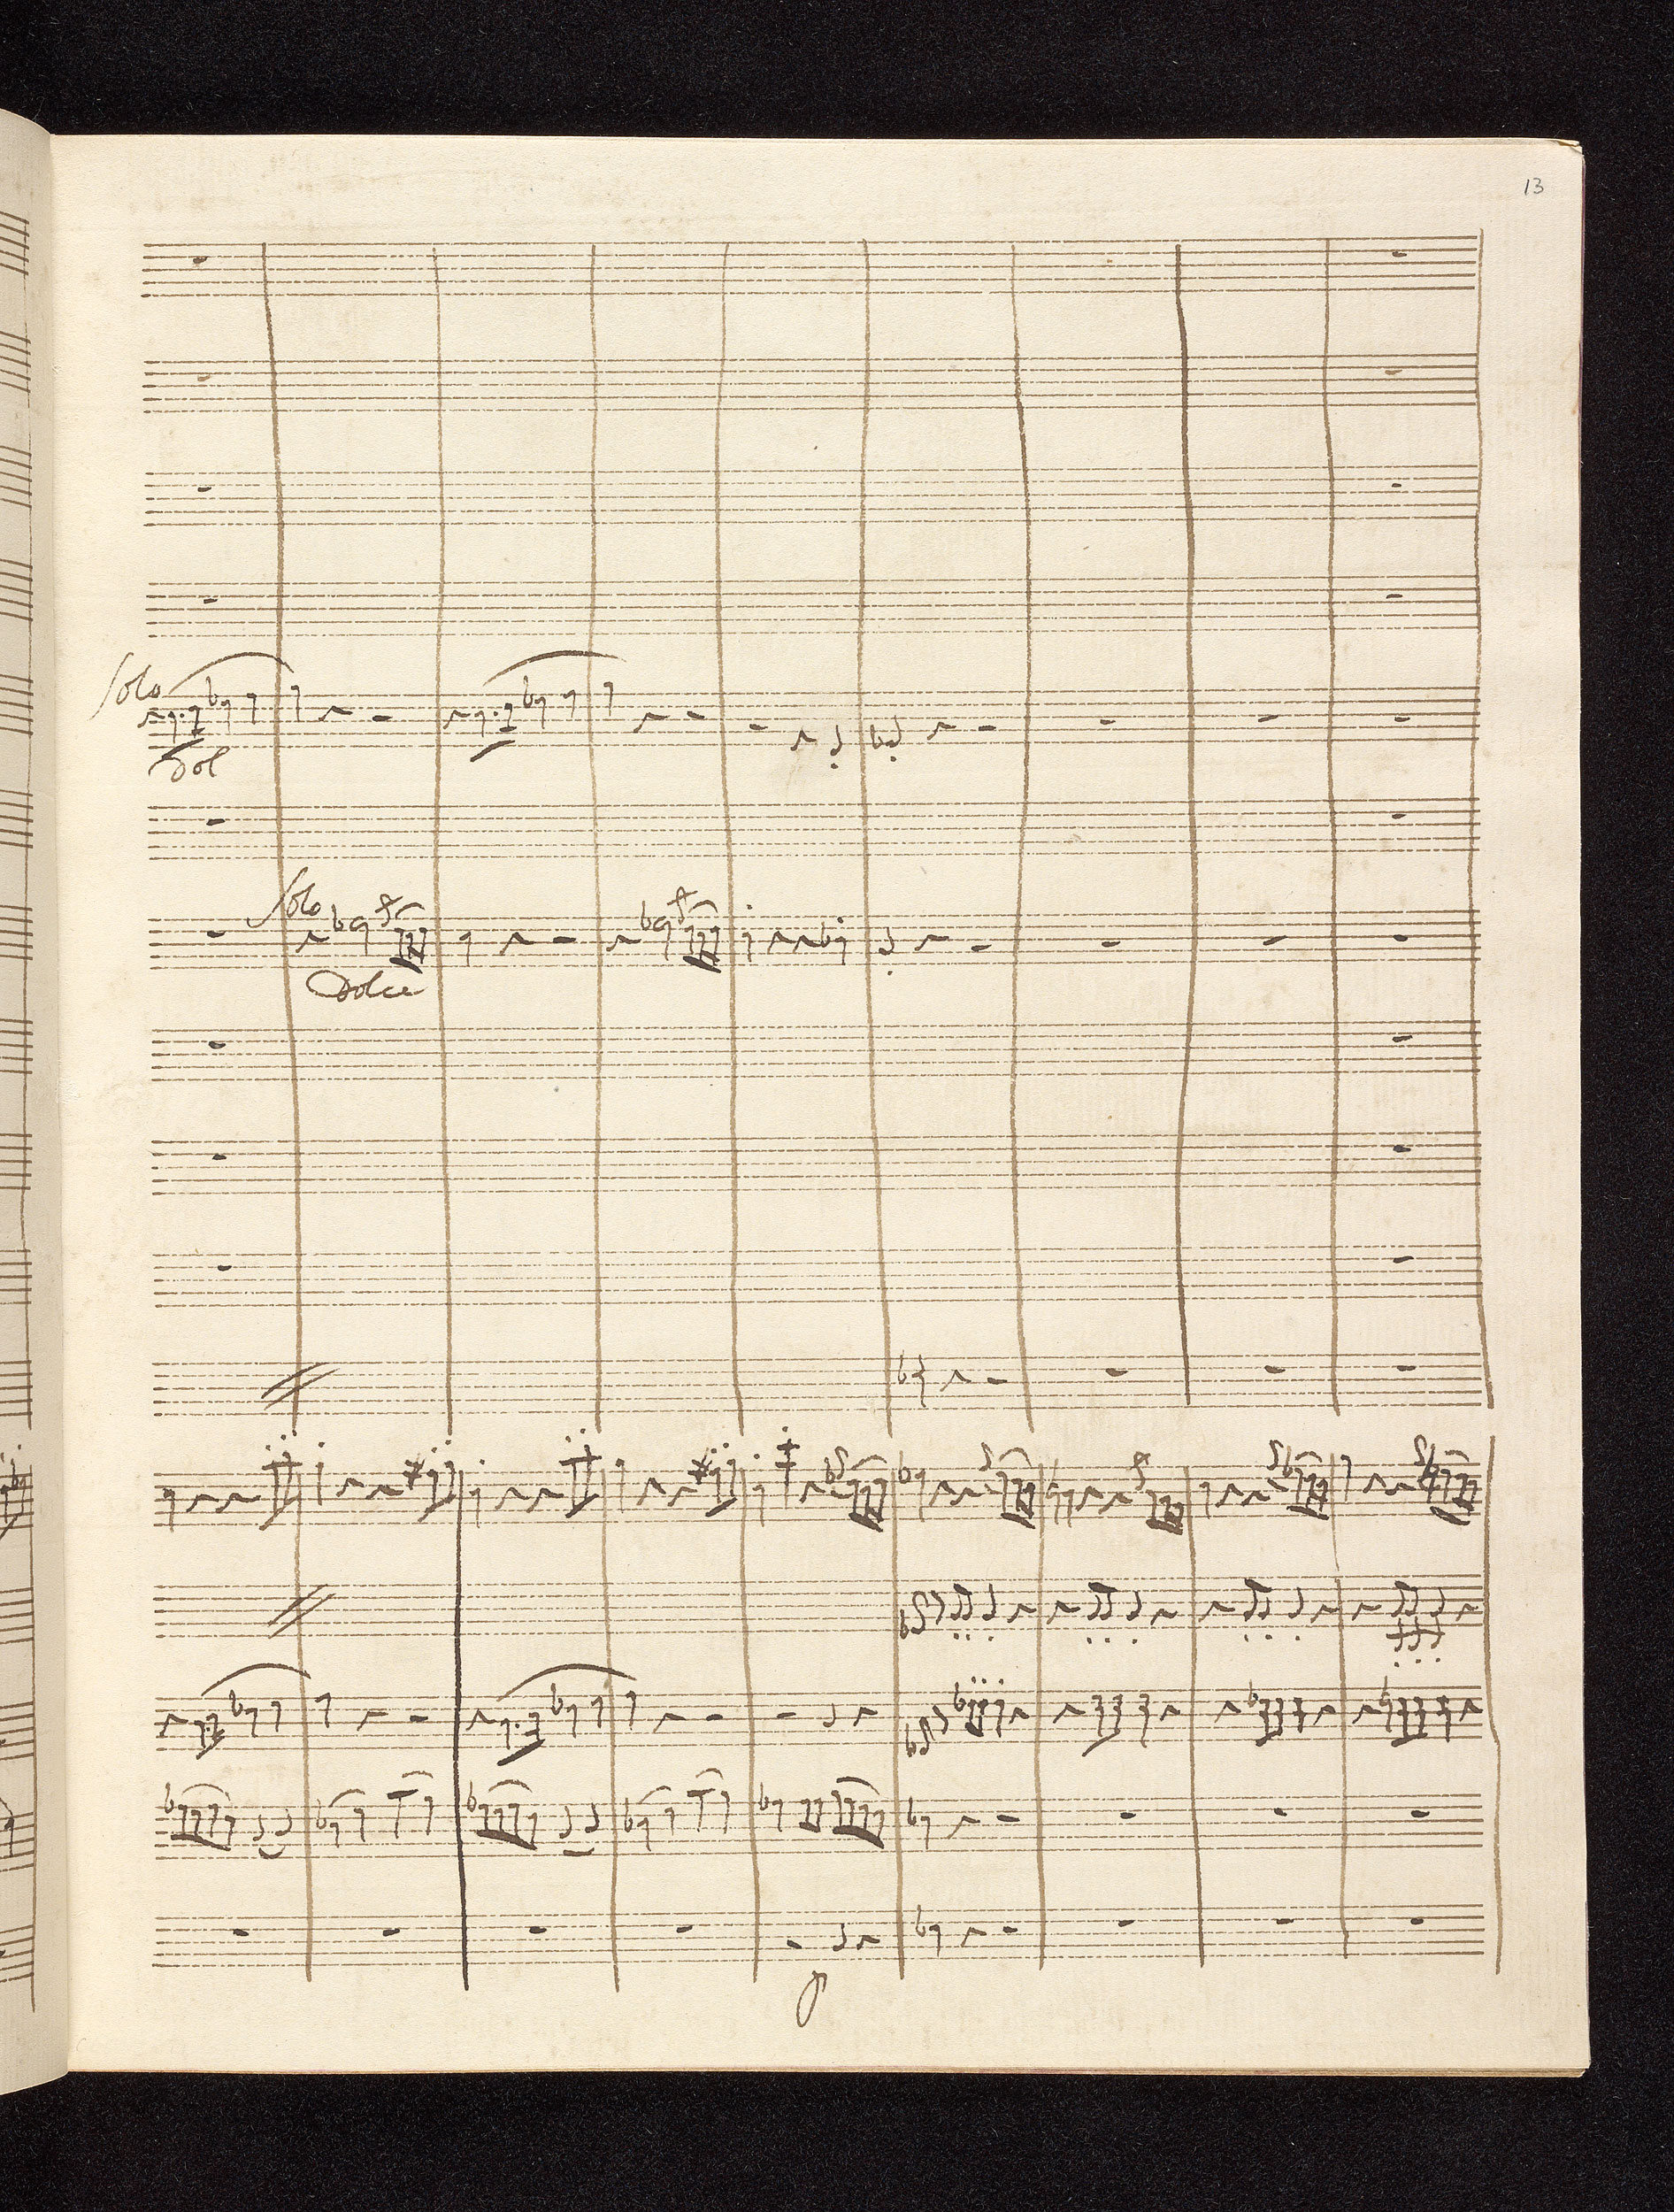 13
Solo
Dol
Solo
Dolce
p